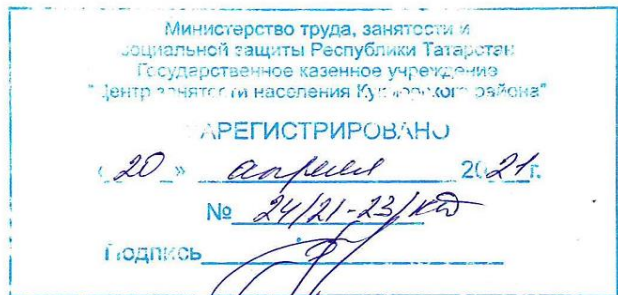 Министерство труда, занятости и
социальной защиты Республики Татарстан
Государственное казенное учреждение
"Центр занятости населения Кукморского района"
ЗАРЕГИСТРИРОВАНО
«20» апреля 2021г.
№ 24/21-23/кд
Подпись